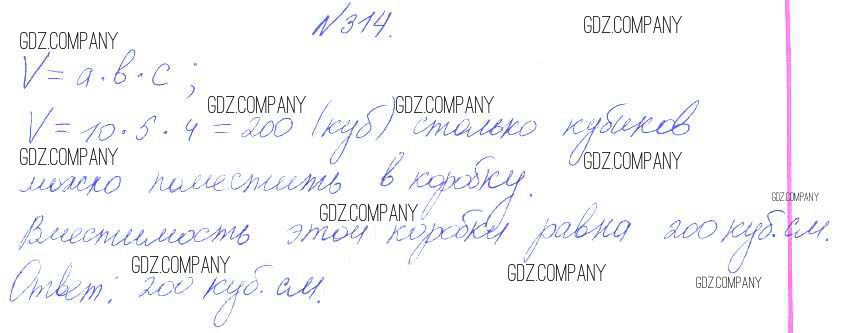 №314.
V = а · в · с ;
V = 10 · 5 · 4 = 200 (куб) столько кубиков
можно поместить в коробку.
Вместимость этой коробки равна 200 куб. см.
Ответ: 200 куб. см.
GDZ.COMPANY
GDZ.COMPANY
GDZ.COMPANY
GDZ.COMPANY
GDZ.COMPANY
GDZ.COMPANY
GDZ.COMPANY
GDZ.COMPANY
GDZ.COMPANY
GDZ.COMPANY
GDZ.COMPANY